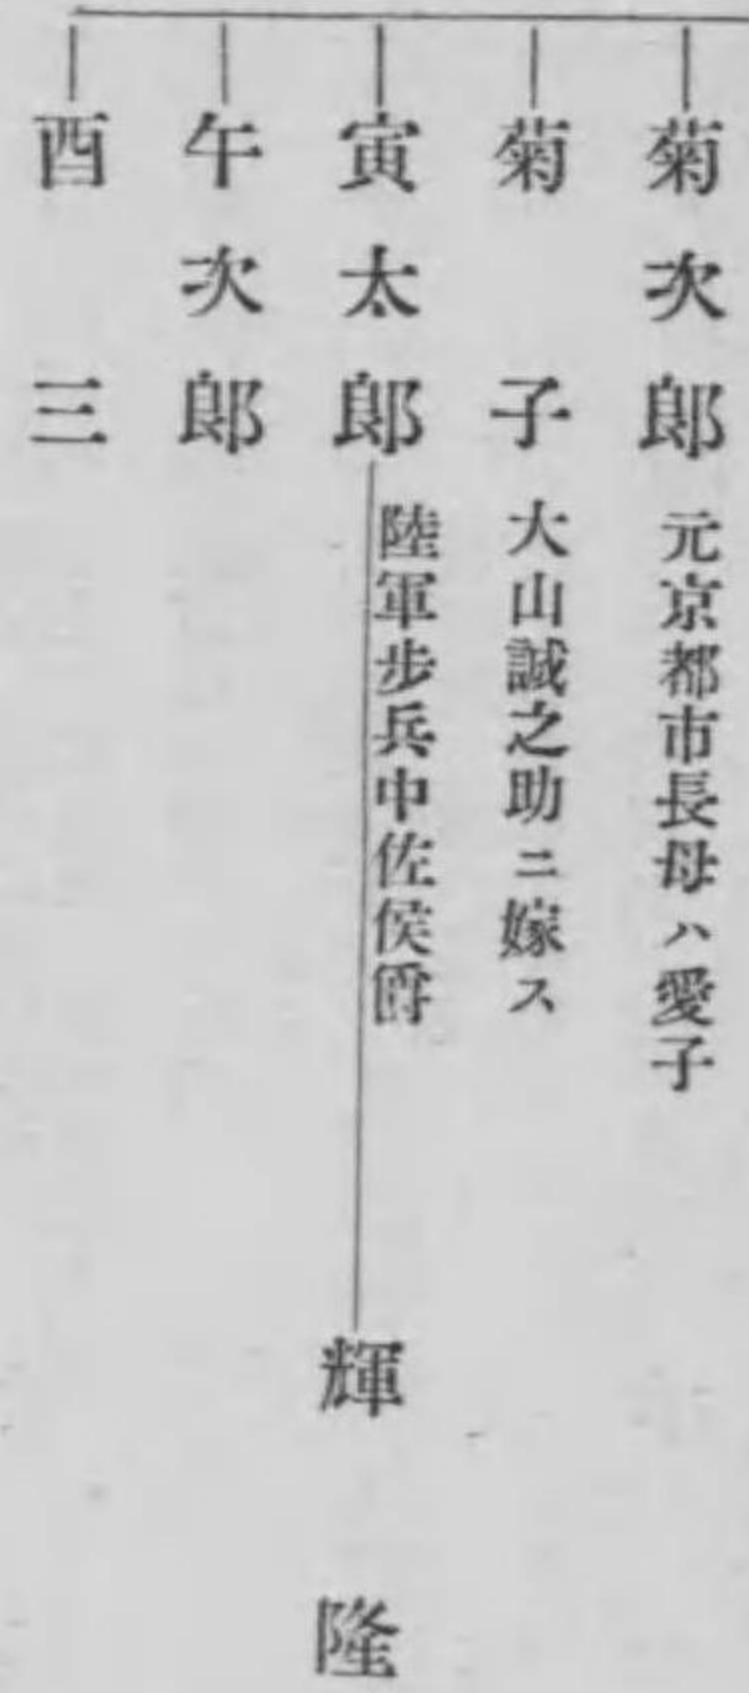 菊次郎 元京都市長母ハ愛子
菊子 大山誠之助ニ嫁ス
寅太郎 陸軍歩兵中佐侯爵 輝隆
午次郎
酉三